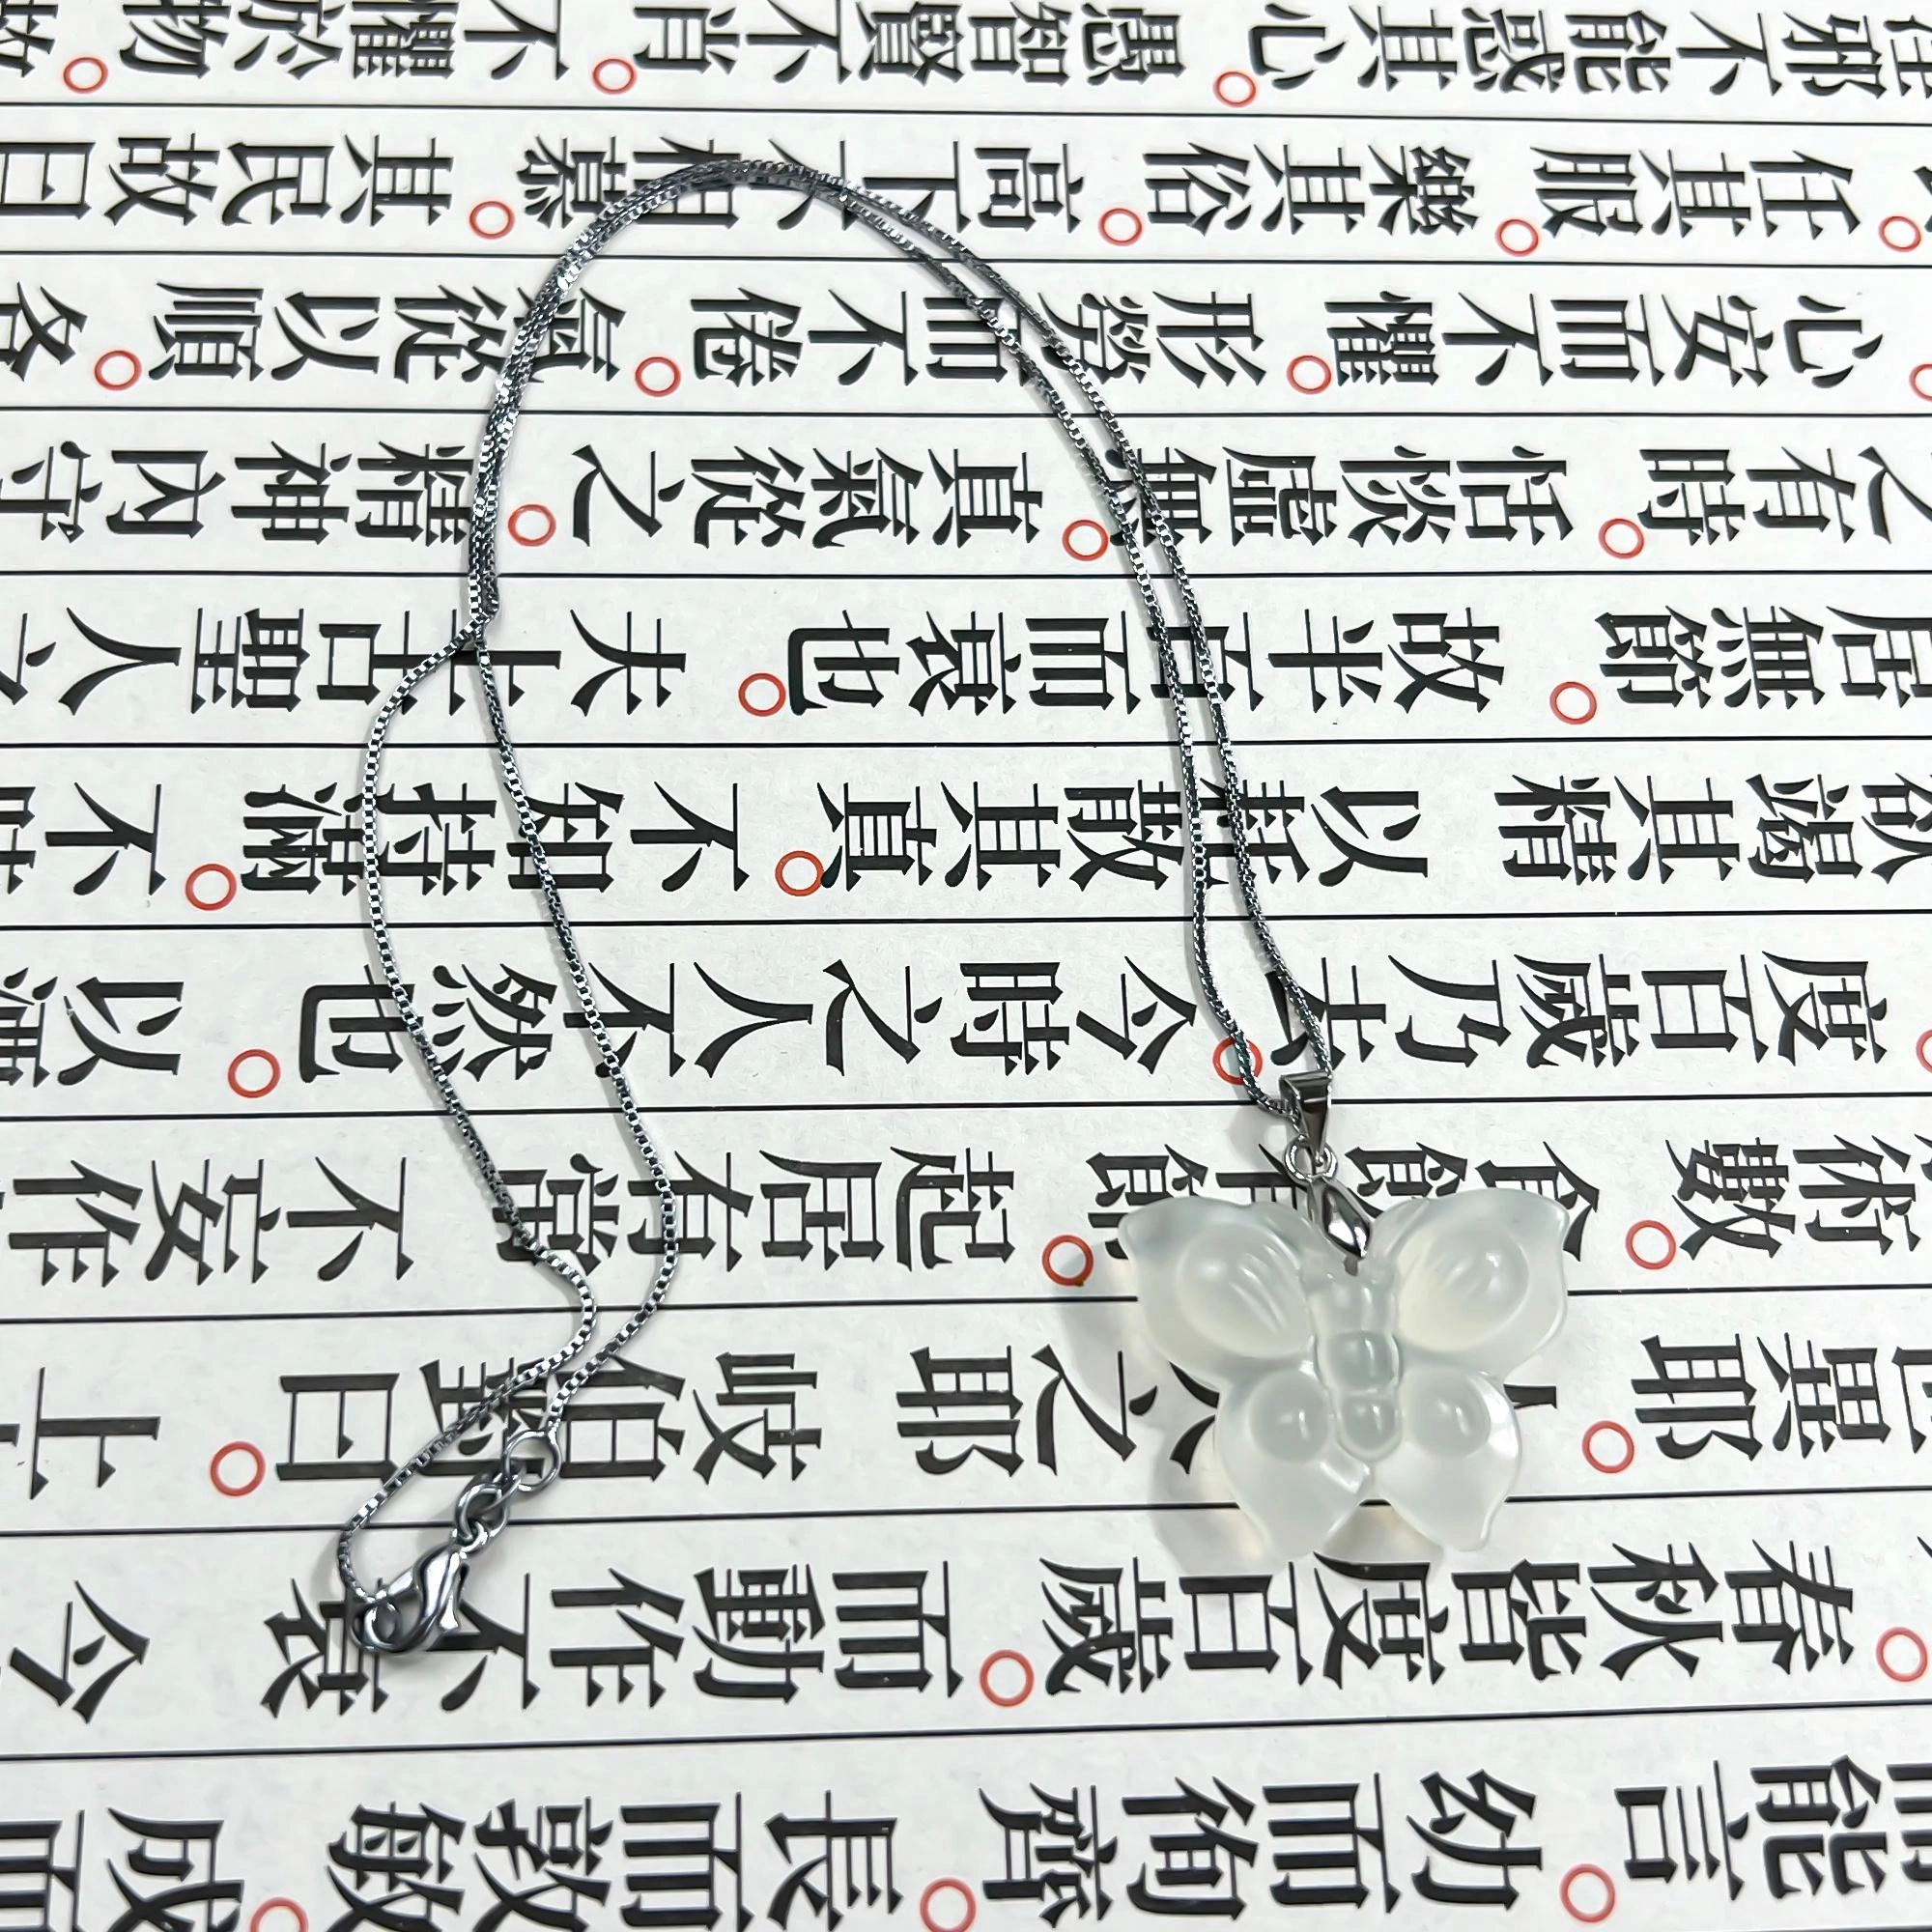 能言。幼而徇齊。長而敦敏。成而
。春秋皆度百歲。而動作不衰 今
異耶。人之耶 岐伯對曰。上
術數。食飲有節。起居有常 不妄作
度百歲乃去。今時之人不然也。以酒
欲竭其精 以耗散其真。不知持滿。不時
居無節。故半百而衰也。夫上古聖人之
之有時。恬惔虛無。真氣從之。精神內守
心安而不懼。形勞而不倦。氣從以順。各
。任其服。樂其俗。高下不相慕。其民故曰
淫邪不能惑其心。愚智賢不肖。不懼於物。故